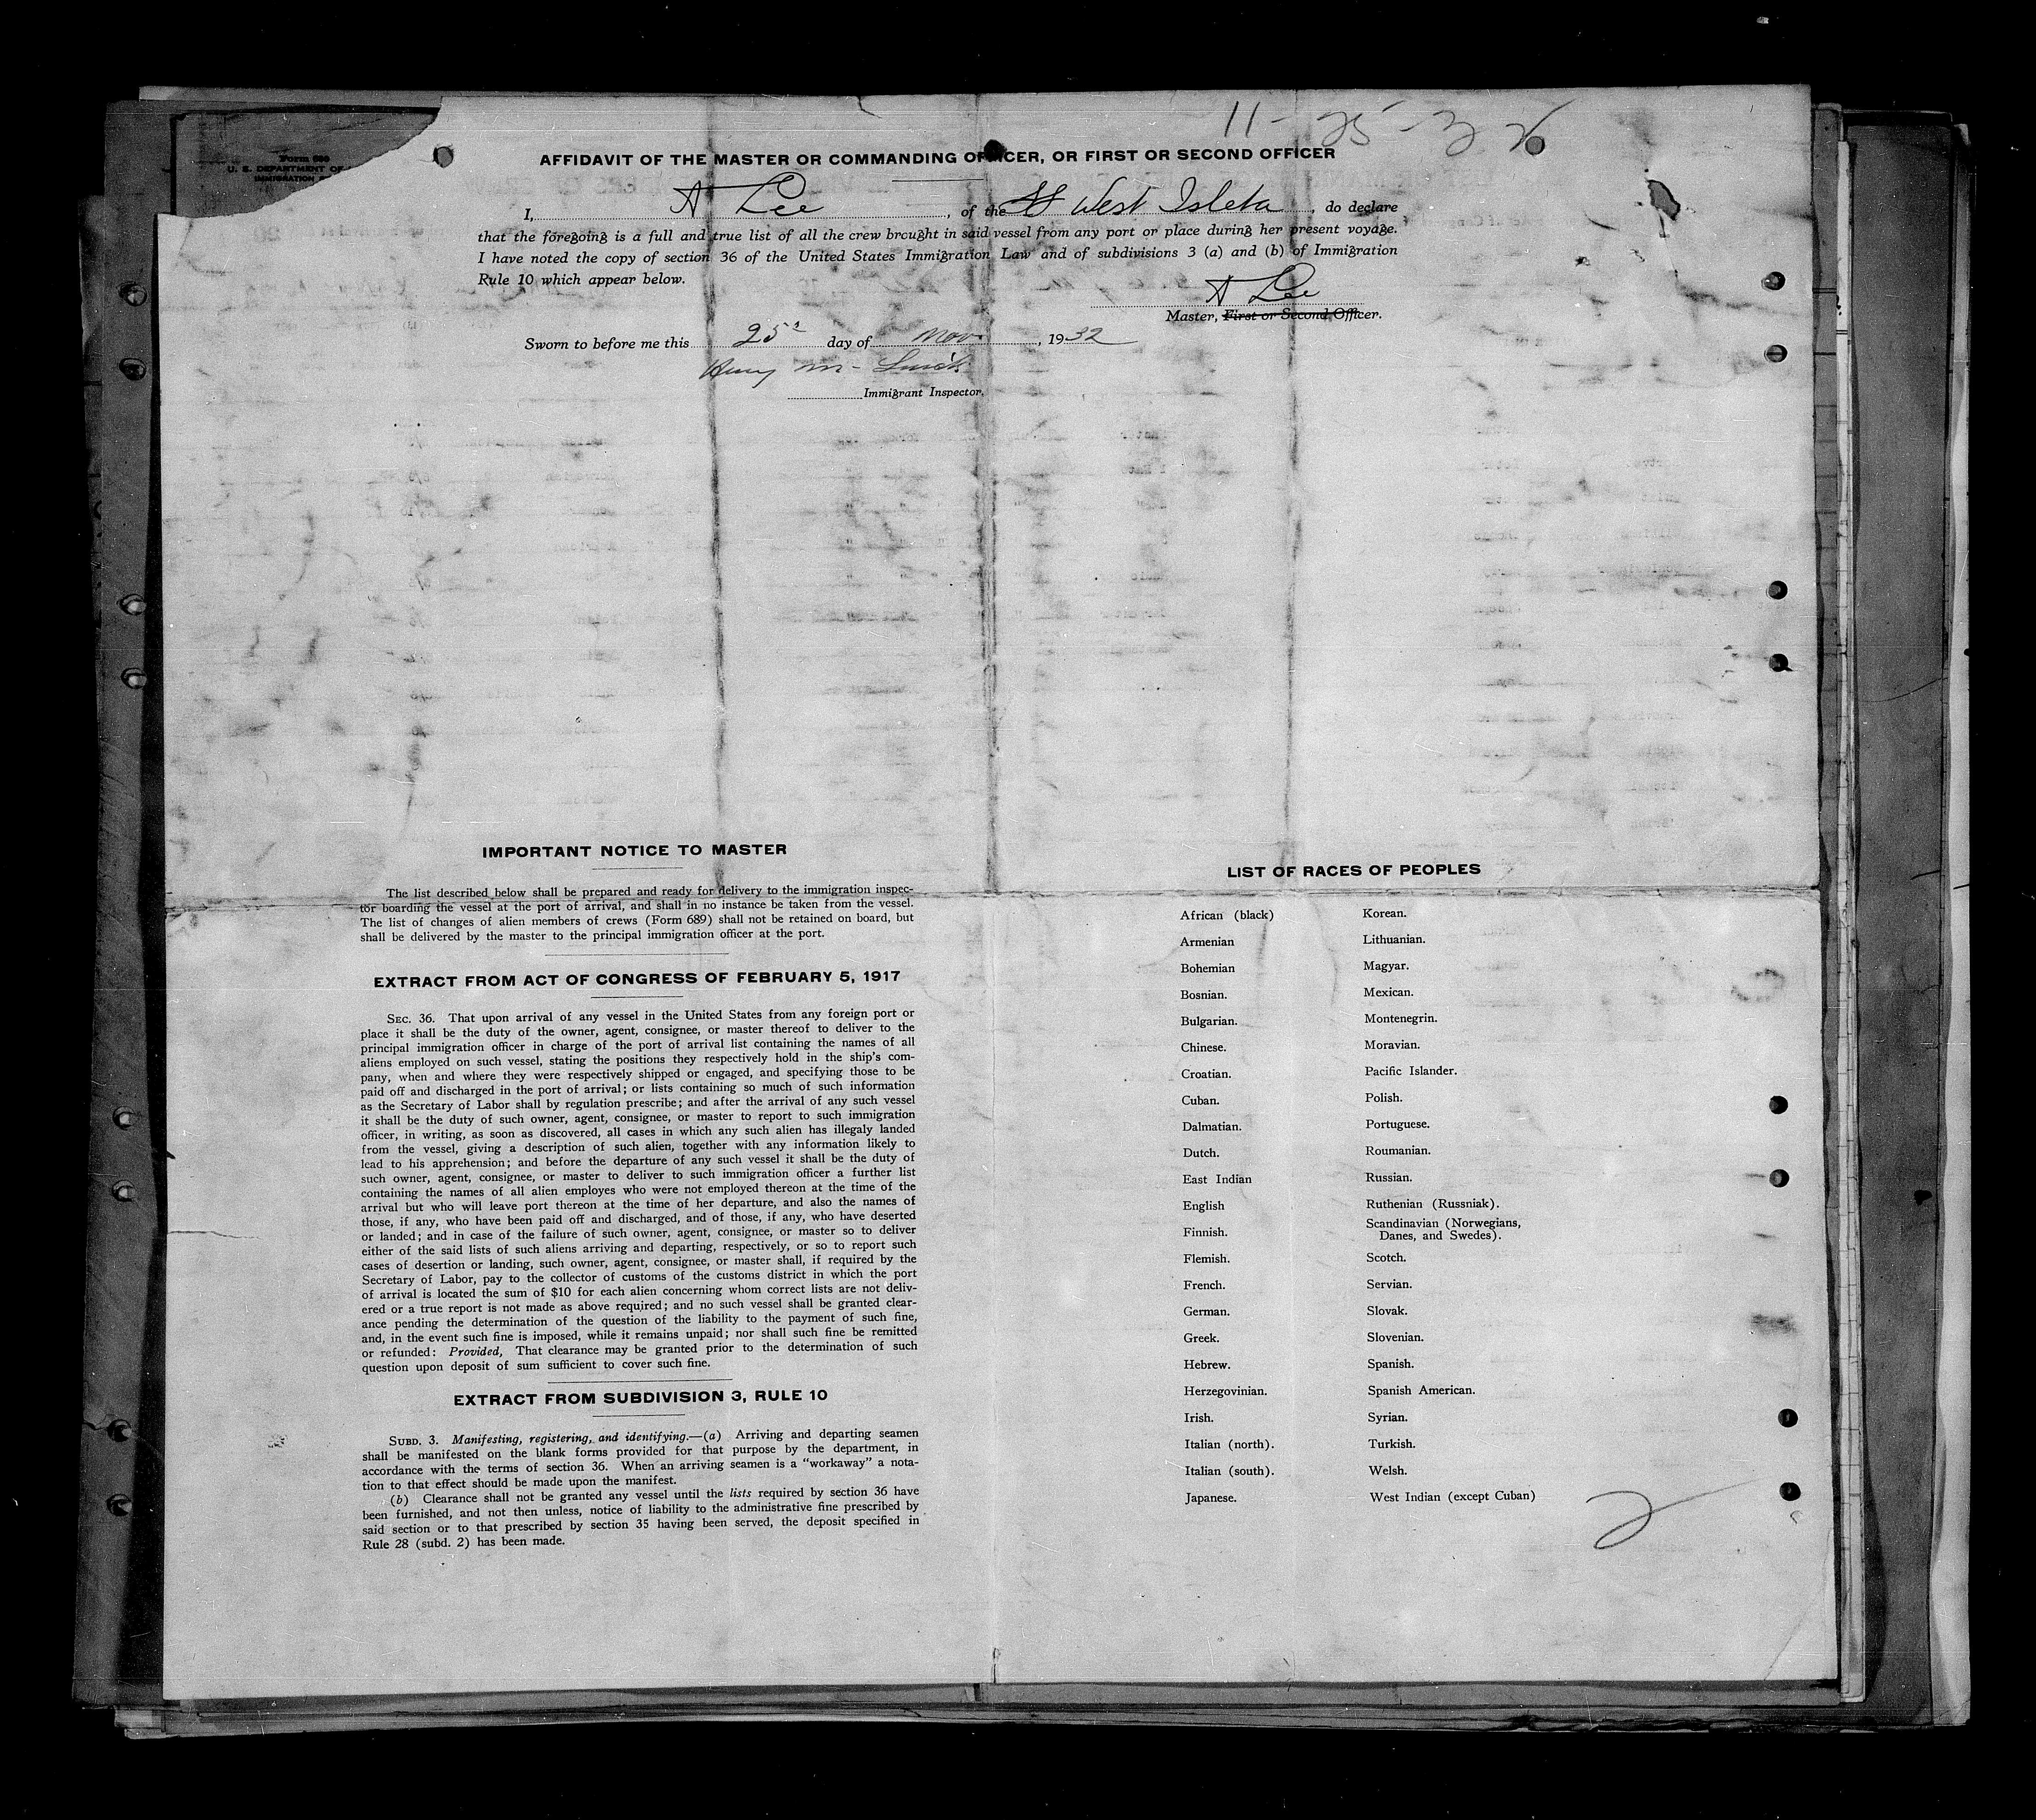 11-25-32
Form 689
U. S. DEPARTMENT OF
IMMIGRATION
AFFIDAVIT OF THE MASTER OR COMMANDING OFFICER, OR FIRST OR SECOND OFFICER
I, A Lee, of the SS West Isleta, do declare
that the foregoing is a full and true list of all the crew brought in said vessel from any port or place during her present voyage.
I have noted the copy of section 36 of the United States Immigration Law and of subdivisions 3 (a) and (b) of Immigration
Rule 10 which appear below.
A Lee
Master, First or Second Officer.
Sworn to before me this 25 day of Nov, 1932
Henry M.
Immigrant Inspector.
IMPORTANT NOTICE TO MASTER
The list described below shall be prepared and ready for delivery to the immigration inspec-
tor boarding the vessel at the port of arrival, and shall in no instance be taken from the vessel.
The list of changes of alien members of crews (Form 689) shall not be retained on board, but
shall be delivered by the master to the principal immigration officer at the port.
EXTRACT FROM ACT OF CONGRESS OF FEBRUARY 5, 1917
SEC. 36. That upon arrival of any vessel in the United States from any foreign port or
place it shall be the duty of the owner, agent, consignee, or master thereof to deliver to the
principal immigration officer in charge of the port of arrival list containing the names of all
aliens employed on such vessel, stating the positions they respectively hold in the ship's com-
pany, when and where they were respectively shipped or engaged, and specifying those to be
paid off and discharged in the port of arrival; or lists containing so much of such information
as the Secretary of Labor shall by regulation prescribe; and after the arrival of any such vessel
it shall be the duty of such owner, agent, consignee, or master to report to such immigration
officer, in writing, as soon as discovered, all cases in which any such alien has illegaly landed
from the vessel, giving a description of such alien, together with any information likely to
lead to his apprehension; and before the departure of any such vessel it shall be the duty of
such owner, agent, consignee, or master to deliver to such immigration officer a further list
containing the names of all alien employes who were not employed thereon at the time of the
arrival but who will leave port thereon at the time of her departure, and also the names of
those, if any, who have been paid off and discharged, and of those, if any, who have deserted
or landed; and in case of the failure of such owner, agent, consignee, or master so to deliver
either of the said lists of such aliens arriving and departing, respectively, or so to report such
cases of desertion or landing, such owner, agent, consignee, or master shall, if required by the
Secretary of Labor, pay to the collector of customs of the customs district in which the port
of arrival is located the sum of $10 for each alien concerning whom correct lists are not deliv-
ered or a true report is not made as above required; and no such vessel shall be granted clear-
ance pending the determination of the question of the liability to the payment of such fine,
and, in the event such fine is imposed, while it remains unpaid; nor shall such fine be remitted
or refunded: Provided, That clearance may be granted prior to the determination of such
question upon deposit of sum sufficient to cover such fine.
EXTRACT FROM SUBDIVISION 3, RULE 10
SUBD. 3. Manifesting, registering, and identifying.—(a) Arriving and departing seamen
shall be manifested on the blank forms provided for that purpose by the department, in
accordance with the terms of section 36. When an arriving seamen is a "workaway" a nota-
tion to that effect should be made upon the manifest.
(b) Clearance shall not be granted any vessel until the lists required by section 36 have
been furnished, and not then unless, notice of liability to the administrative fine prescribed by
said section or to that prescribed by section 35 having been served, the deposit specified in
Rule 28 (subd. 2) has been made.
LIST OF RACES OF PEOPLES
African (black)
Armenian
Bohemian
Bosnian.
Bulgarian.
Chinese.
Croatian.
Cuban.
Dalmatian.
Dutch.
East Indian
English
Finnish.
Flemish.
French.
German.
Greek.
Hebrew.
Herzegovinian.
Irish.
Italian (north).
Italian (south).
Japanese.
Korean.
Lithuanian.
Magyar.
Mexican.
Montenegrin.
Moravian.
Pacific Islander.
Polish.
Portuguese.
Roumanian.
Russian.
Ruthenian (Russniak).
Scandinavian (Norwegians,
Danes, and Swedes).
Scotch.
Servian.
Slovak.
Slovenian.
Spanish.
Spanish American.
Syrian.
Turkish.
Welsh.
West Indian (except Cuban)